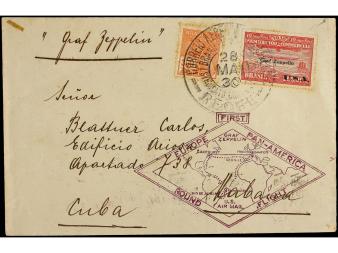 "Graf Zeppelin"
28
MAI
30
Graf Zeppelin
BRASIL
U.S.A.
Señor
Blattner Carlos,
Edificio
Apartado 738
Habana
Cuba
FIRST
EUROPE PAN-AMERICA
GRAF
ZEPPELIN
U.S.
AIR MAIL
ROUND FLIGHT